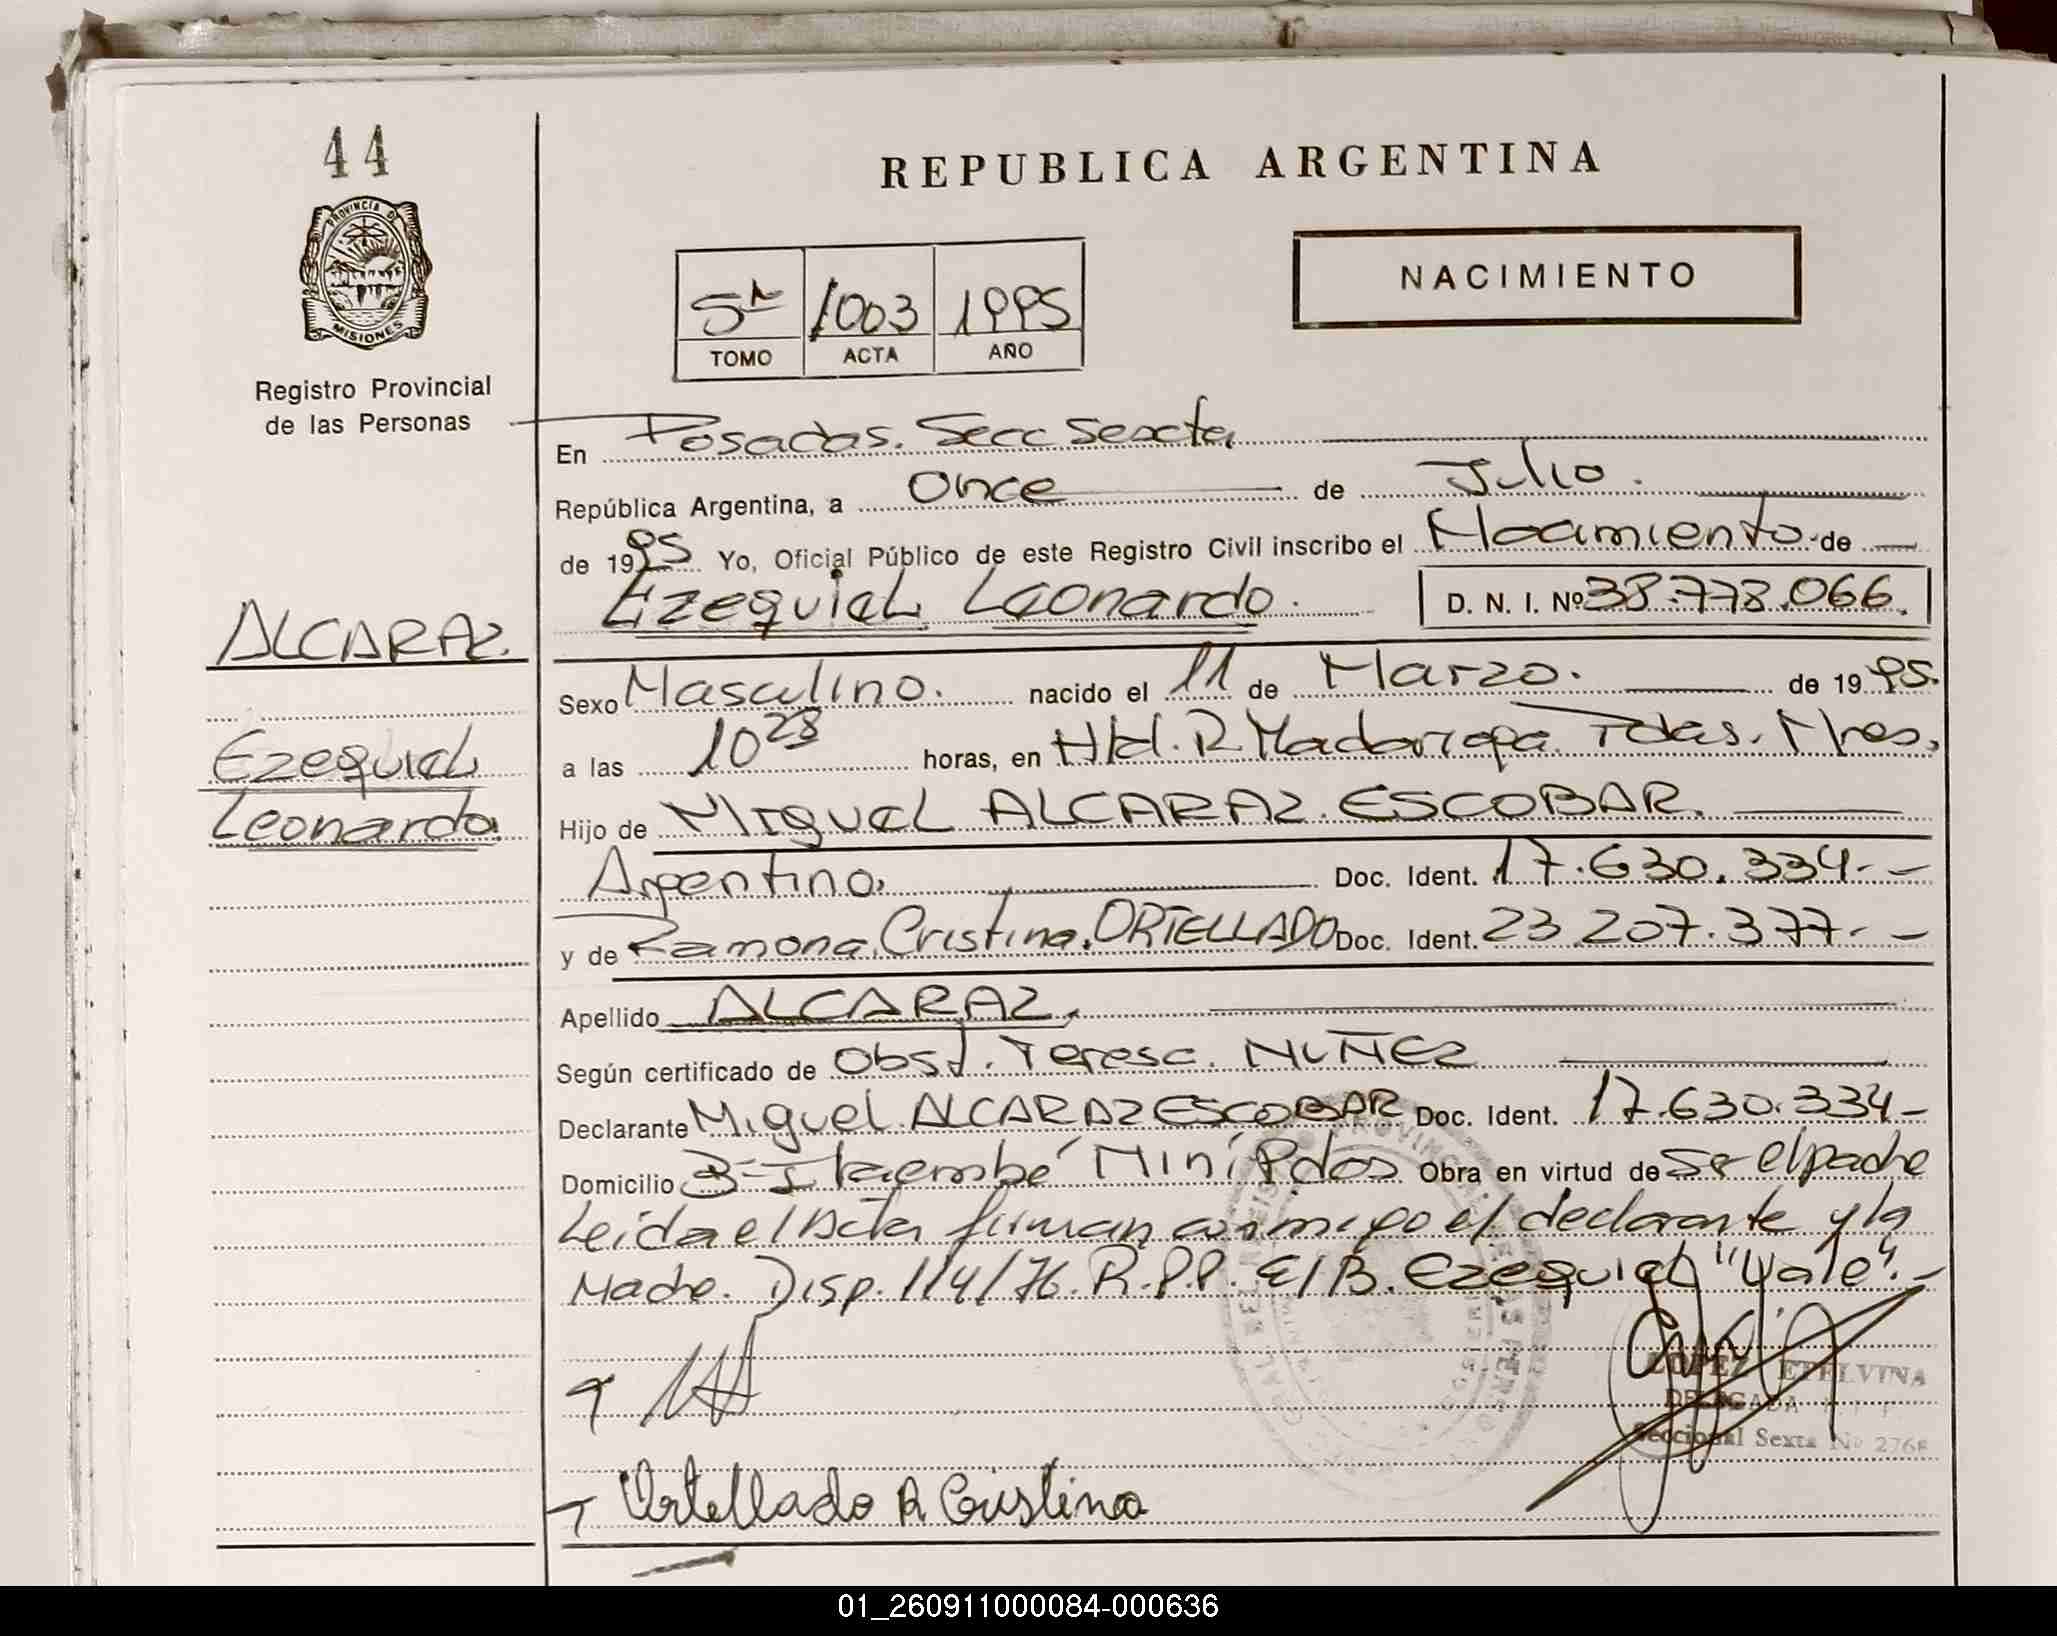 44
PROVINCIA DE
MISIONES
Registro Provincial
de las Personas
REPUBLICA ARGENTINA
NACIMIENTO
5ª 1003 1995
TOMO ACTA AÑO
En Posadas. Secc Sexta
República Argentina, a Once de Julio.
de 1995 Yo, Oficial Público de este Registro Civil inscribo el Nacimiento de
Ezequiel Leonardo. D. N. I. Nº 38.778.066.
ALCARAZ.
Ezequiel
Leonardo.
Sexo Masculino. nacido el 11 de Marzo. de 1995.
a las 10 28 horas, en Htal. R. Madariaga. Pdas. Mnes.
Hijo de Miguel ALCARAZ ESCOBAR.
Argentino. Doc. Ident. 17.630.334.-
y de Ramona Cristina ORTELLADO Doc. Ident. 23.207.377.-
Apellido ALCARAZ.
Según certificado de Obst. Teresa NUÑEZ
Declarante Miguel ALCARAZ ESCOBAR Doc. Ident. 17.630.334-
Domicilio Bº Itaembé Miní Pdas Obra en virtud de Ser el padre
Leida el Acta firman conmigo el declarante y la
Madre. Disp. 114/76. R.P.P. E/B. Ezequiel "Vale".-
LOPEZ ETELVINA
DELEGADA
Seccional Sexta Nº 276
Ortellado R Cristina
01_260911000084-000636